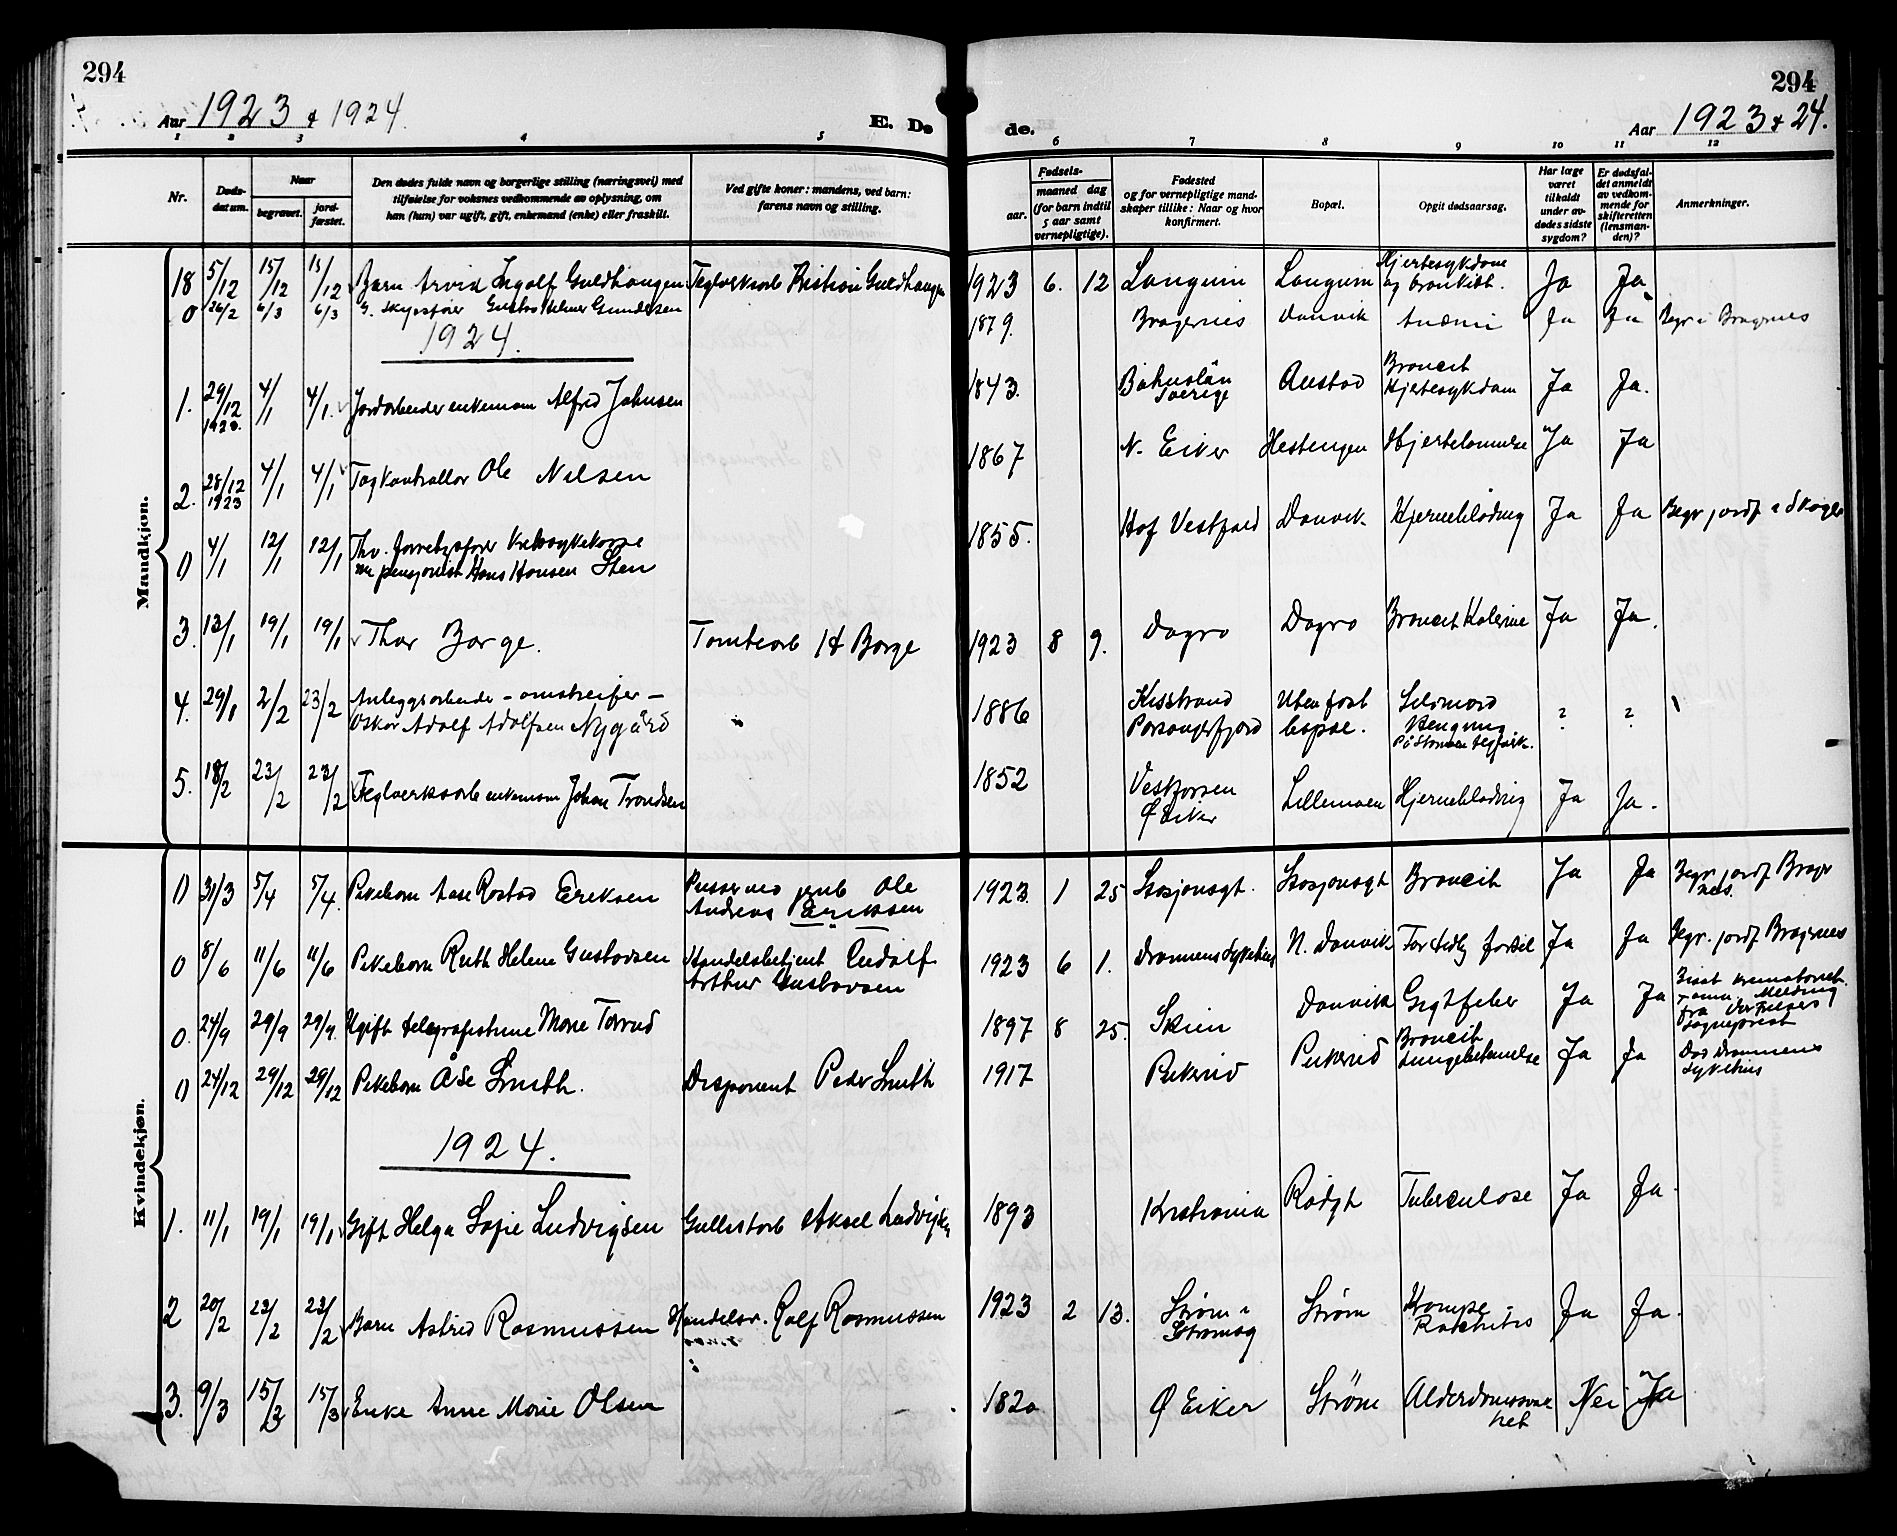 294
Aar 1923 & 1924.
E. Dø
1 2 3 4 5
Nr.
Døds-datum.
Naar
begravet.
jord-fæstet.
Den dødes fulde navn og borgerlige stilling (næringsvei) med
tilføielse for voksnes vedkommende av oplysning, om
han (hun) var ugift, gift, enkemand (enke) eller fraskilt.
Ved gifte koner: mandens, ved barn:
farens navn og stilling.
Mandkjøn.
18 5/12 15/12 15/12 Barn Arvid Ingolf Guldhaugen Teglverksarb Kristian Guldhaugen
0 26/2 6/3 6/3 G. skipsfører Gustav Helmer Gundersen
1924.
1. 29/12 1923. 4/1 4/1. Jordarbeider enkemann Alfred Johnsen
2. 28/12 1923 4/1 4/1 Togkontrollør Ole Nilsen
0 4/1 12/1 12/1 Thv.
pensjonist Hans Hansen Sten
3. 13/1 19/1 19/1 Thor Borge. Tomtearb H Borge
4. 29/1 2/2 23/2 Anleggsarbeider - omstreifer -
Oskar Adolf Adolfsen Nygård
5. 18/2 23/2 23/2 Teglverksarb enkemann Johan Trondsen
Kvindekjøn.
0 31/3 5/4 5/4. Pikebarn Aase Rostad Eriksen Pusser ved jernb Ole
Andreas Eriksen
0 8/6 11/6 11/6 Pikebarn Ruth Helene Gustavsen Handelsbetjent Rudolf
Arthur Gustavsen
0. 24/9 29/9 29/9. Ugift telegrafistinne Marie Torrud
0 24/12 29/12 29/12 Pikebarn Åse Smith. Disponent Peder Smith
1924.
1. 11/1 19/1 19/1 Gift Helga Sofie Ludvigsen Gullistarb Aksel Ludvigsen
2 20/2 23/2 23/2 Barn Astrid Rasmussen Handelsr. Rolf Rasmussen
3. 9/3 15/3 15/3 Enke Anne Marie Olsen
294
de.
Aar 1923 & 24.
6 7 8 9 10 11 12
Fødsels-
aar.
maaned dag
(for barn indtil
5 aar samt
vernepligtige).
Fødested
og for vernepligtige mand-
skaper tillike: Naar og hvor
konfirmert.
Bopæl.
Opgit dødsaarsag.
Har læge
været
tilkaldt
under av-
dødes sidste
sygdom?
Er dødsfal-
det anmeldt
av vedkom-
mende for
skifteretten
(lensman-
den)?
Anmerkninger.
1923 6. 12 Langum Langum Hjertesykdom
og bronkidt. Ja Ja
1879. Bragernes Danvik Anæmi Ja Ja Begr i Bragernes
1843. Bohuslän
Sverige Austad Broncit
Hjertesykdom Ja Ja.
1867 N. Eiker Hestengen Hjertelammelse Ja Ja
1855. Hof Vestfold Danvik Hjerneblødning Ja Ja Begr jordf i Skoger
1923 8 9. Døgro Døgro Broncit Kolerine Ja Ja.
1886 Kisstrand
Porsangerfjord Uten fast
bopæl. Selvmord
Hengning
På Strømmen teglverk. ? ?
1852 Vestfossen
Ø Eiker Lillemoen Hjerneblødning Ja Ja.
1923. 1 25 Stasjonsgt. Stasjonsgt Broncit Ja Ja Begr. jordf Brager
nes.
1923 6 1. Drammens Sykehus N. Danvik For tidlig fødsel Ja Ja Begr. jordf Bragernes
1897 8 25. Skien Danvik Gigtfeber Ja Ja Bisat krematoriet
Melding
fra
sogneprest
1917 Bukerud Bukerud Broncit
Lungebetennelse Ja Ja Død Drammens
sykehus
1893 Kristiania Rødgt Tuberculose Ja Ja.
1923 2 13. Strøm i
Strømsg Strøm Krampe
Rakhitis Ja Ja.
1820 Ø Eiker Strøm Alderdomssvak
het Nei Ja